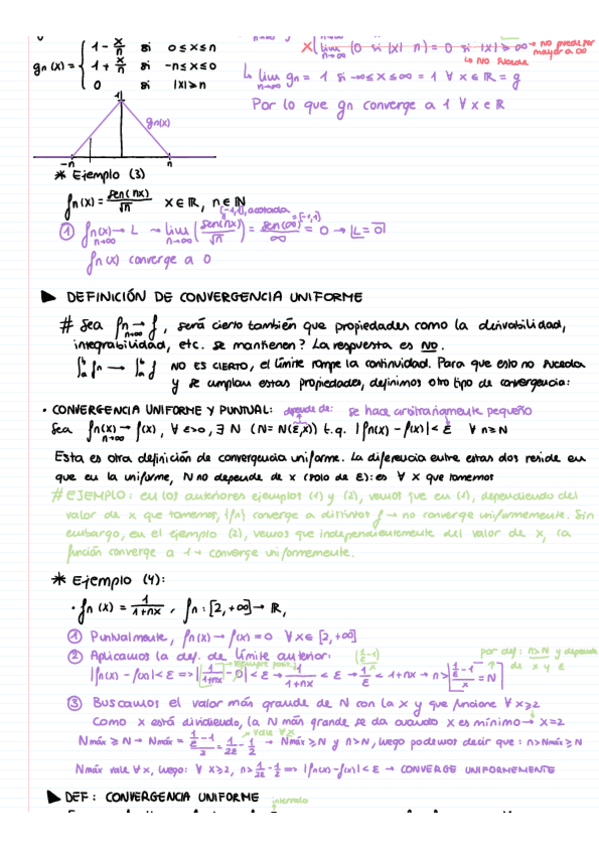 gn(x) = { 1 - x/n si 0≤x≤n
1 + x/n si -n≤x≤0
0 si |x|≥n
X( lim n→∞ (0 si |x| n) = 0 si |x| ≥ ∞ → no puede ser mayor a ∞
↳ No sucede
↳ lim n→∞ gn = 1 si -∞≤x≤∞ = 1 ∀ x∈ℝ = g
Por lo que gn converge a 1 ∀ x∈ℝ
1
gn(x)
-n n
* Ejemplo (3)
fn(x) = sen(nx)/√n x∈ℝ, n∈ℕ
[-1,1], acotada
① fn(x) → L n→∞ → lim n→∞ (sen(nx)/√n) = sen(∞)/∞ = 0 → L=0
[-1,1]
fn(x) converge a 0
▶ DEFINICIÓN DE CONVERGENCIA UNIFORME
# Sea fn → f n→∞, será cierto también que propiedades como la derivabilidad,
integrabilidad, etc. se mantienen? La respuesta es NO.
∫ₐᵇ fn → ∫ₐᵇ f NO ES CIERTO, el límite rompe la continuidad. Para que esto no suceda
y se cumplan estas propiedades, definimos otro tipo de convergencia:
· CONVERGENCIA UNIFORME Y PUNTUAL: depende de: se hace arbitrariamente pequeño
Sea fn(x) → f(x) n→∞, ∀ ε>0, ∃ N (N= N(ε,x)) t.q. |fn(x) - f(x)| < ε ∀ n≥N
Esta es otra definición de convergencia uniforme. La diferencia entre estas dos reside en
que en la uniforme, N no depende de x (solo de ε): es ∀ x que tomemos
# EJEMPLO: en los anteriores ejemplos (1) y (2), vemos que en (1), dependiendo del
valor de x que tomemos, {fn} converge a distintos f → no converge uniformemente. Sin
embargo, en el ejemplo (2), vemos que independientemente del valor de x, la
función converge a 1 → converge uniformemente.
* Ejemplo (4):
· fn(x) = 1/(1+nx), fn: [2,+∞] → ℝ,
① Puntualmente, fn(x) → f(x) = 0 ∀ x∈ [2,+∞]
② Aplicamos la def. de límite anterior:
(1/ε - 1)
por def: n≥N y depende
de x y ε
→ siempre posit.
|fn(x) - f(x)| < ε => |1/(1+nx) - 0| < ε → 1/(1+nx) < ε → 1/ε < 1+nx → n > (1/ε - 1)/x = N
③ Buscamos el valor más grande de N con la x y que funcione ∀ x≥2
Como x está dividiendo, la N más grande se da cuando x es mínimo → x=2
vale ∀ x
Nmáx ≥ N → Nmáx = (1/ε - 1)/2 = 1/2ε - 1/2 → Nmáx ≥ N y n>N, luego podemos decir que: n>Nmáx ≥ N
Nmáx vale ∀ x, luego: ∀ x≥2, n> 1/2ε - 1/2 => |fn(x)-f(x)| < ε → CONVERGE UNIFORMEMENTE
▶ DEF: CONVERGENCIA UNIFORME
intervalo